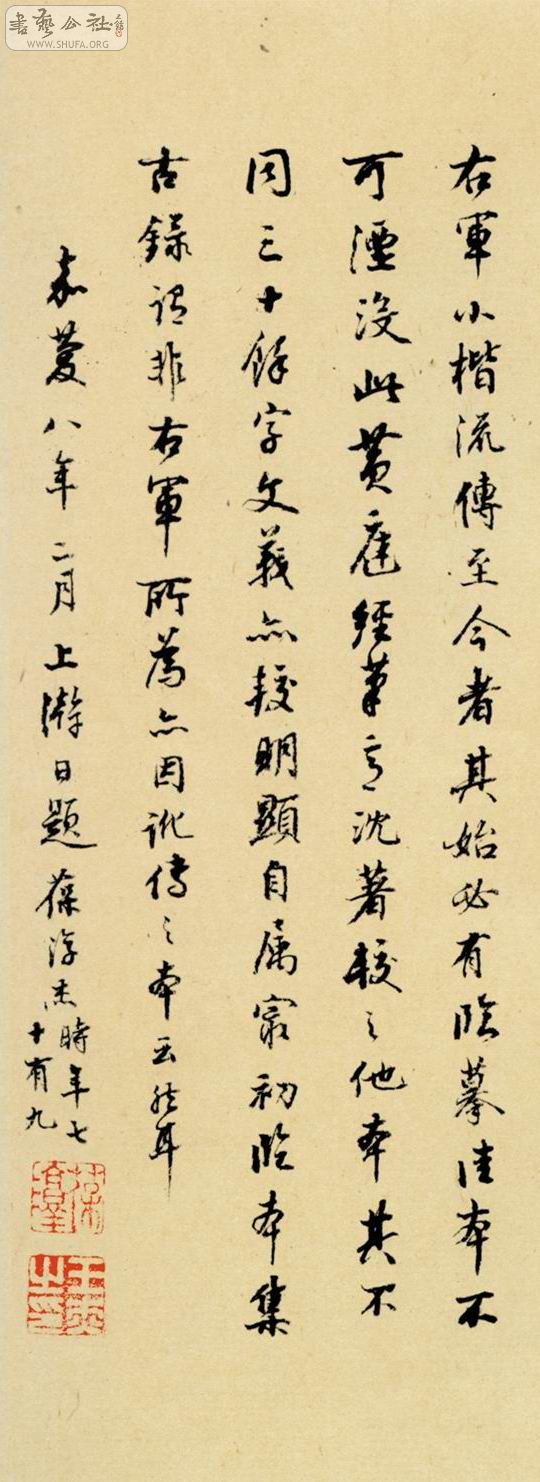 書藝公社
WWW.SHUFA.ORG
右軍小楷流傳至今者其始必有臨摹佳本不
可湮没此黄庭經筆意沈著較之他本其不
同三十餘字文義亦較明顯自属最初臨本集
古錄謂非右軍所為亦因訛傳之本云然耳
嘉慶八年二月上澣日題葆淳
時年七
十有九